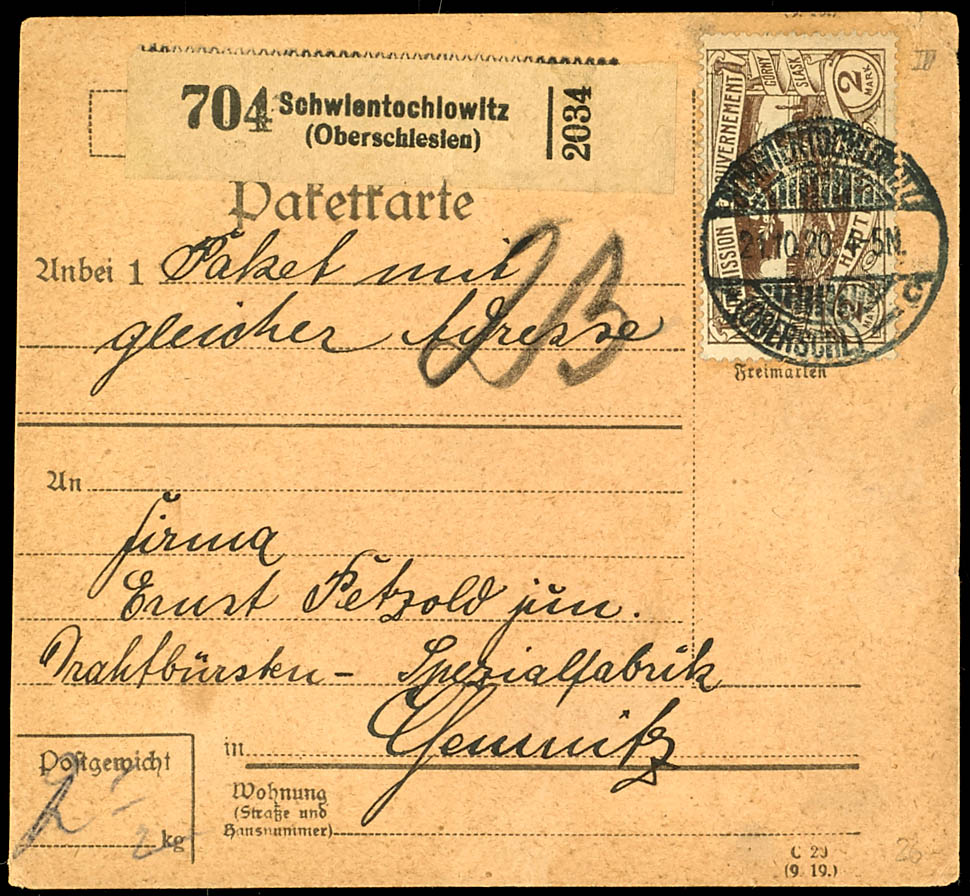 704 Schwientochlowitz
(Oberschlesien)
2034
Paketkarte
Anbei 1 Paket mit
gleicher Adresse
An
Firma
Ernst Petzold jun.
Drahtbürsten- Spezialfabrik
in Chemnitz
Wohnung
(Straße und
Hausnummer)
Postgewicht
2
kg
GORNY
SLASK
2
MARK
21.10.20. 5-
N.
(OBERSCHL.)
c
Freimarken
C 29
(9. 19.)
26-